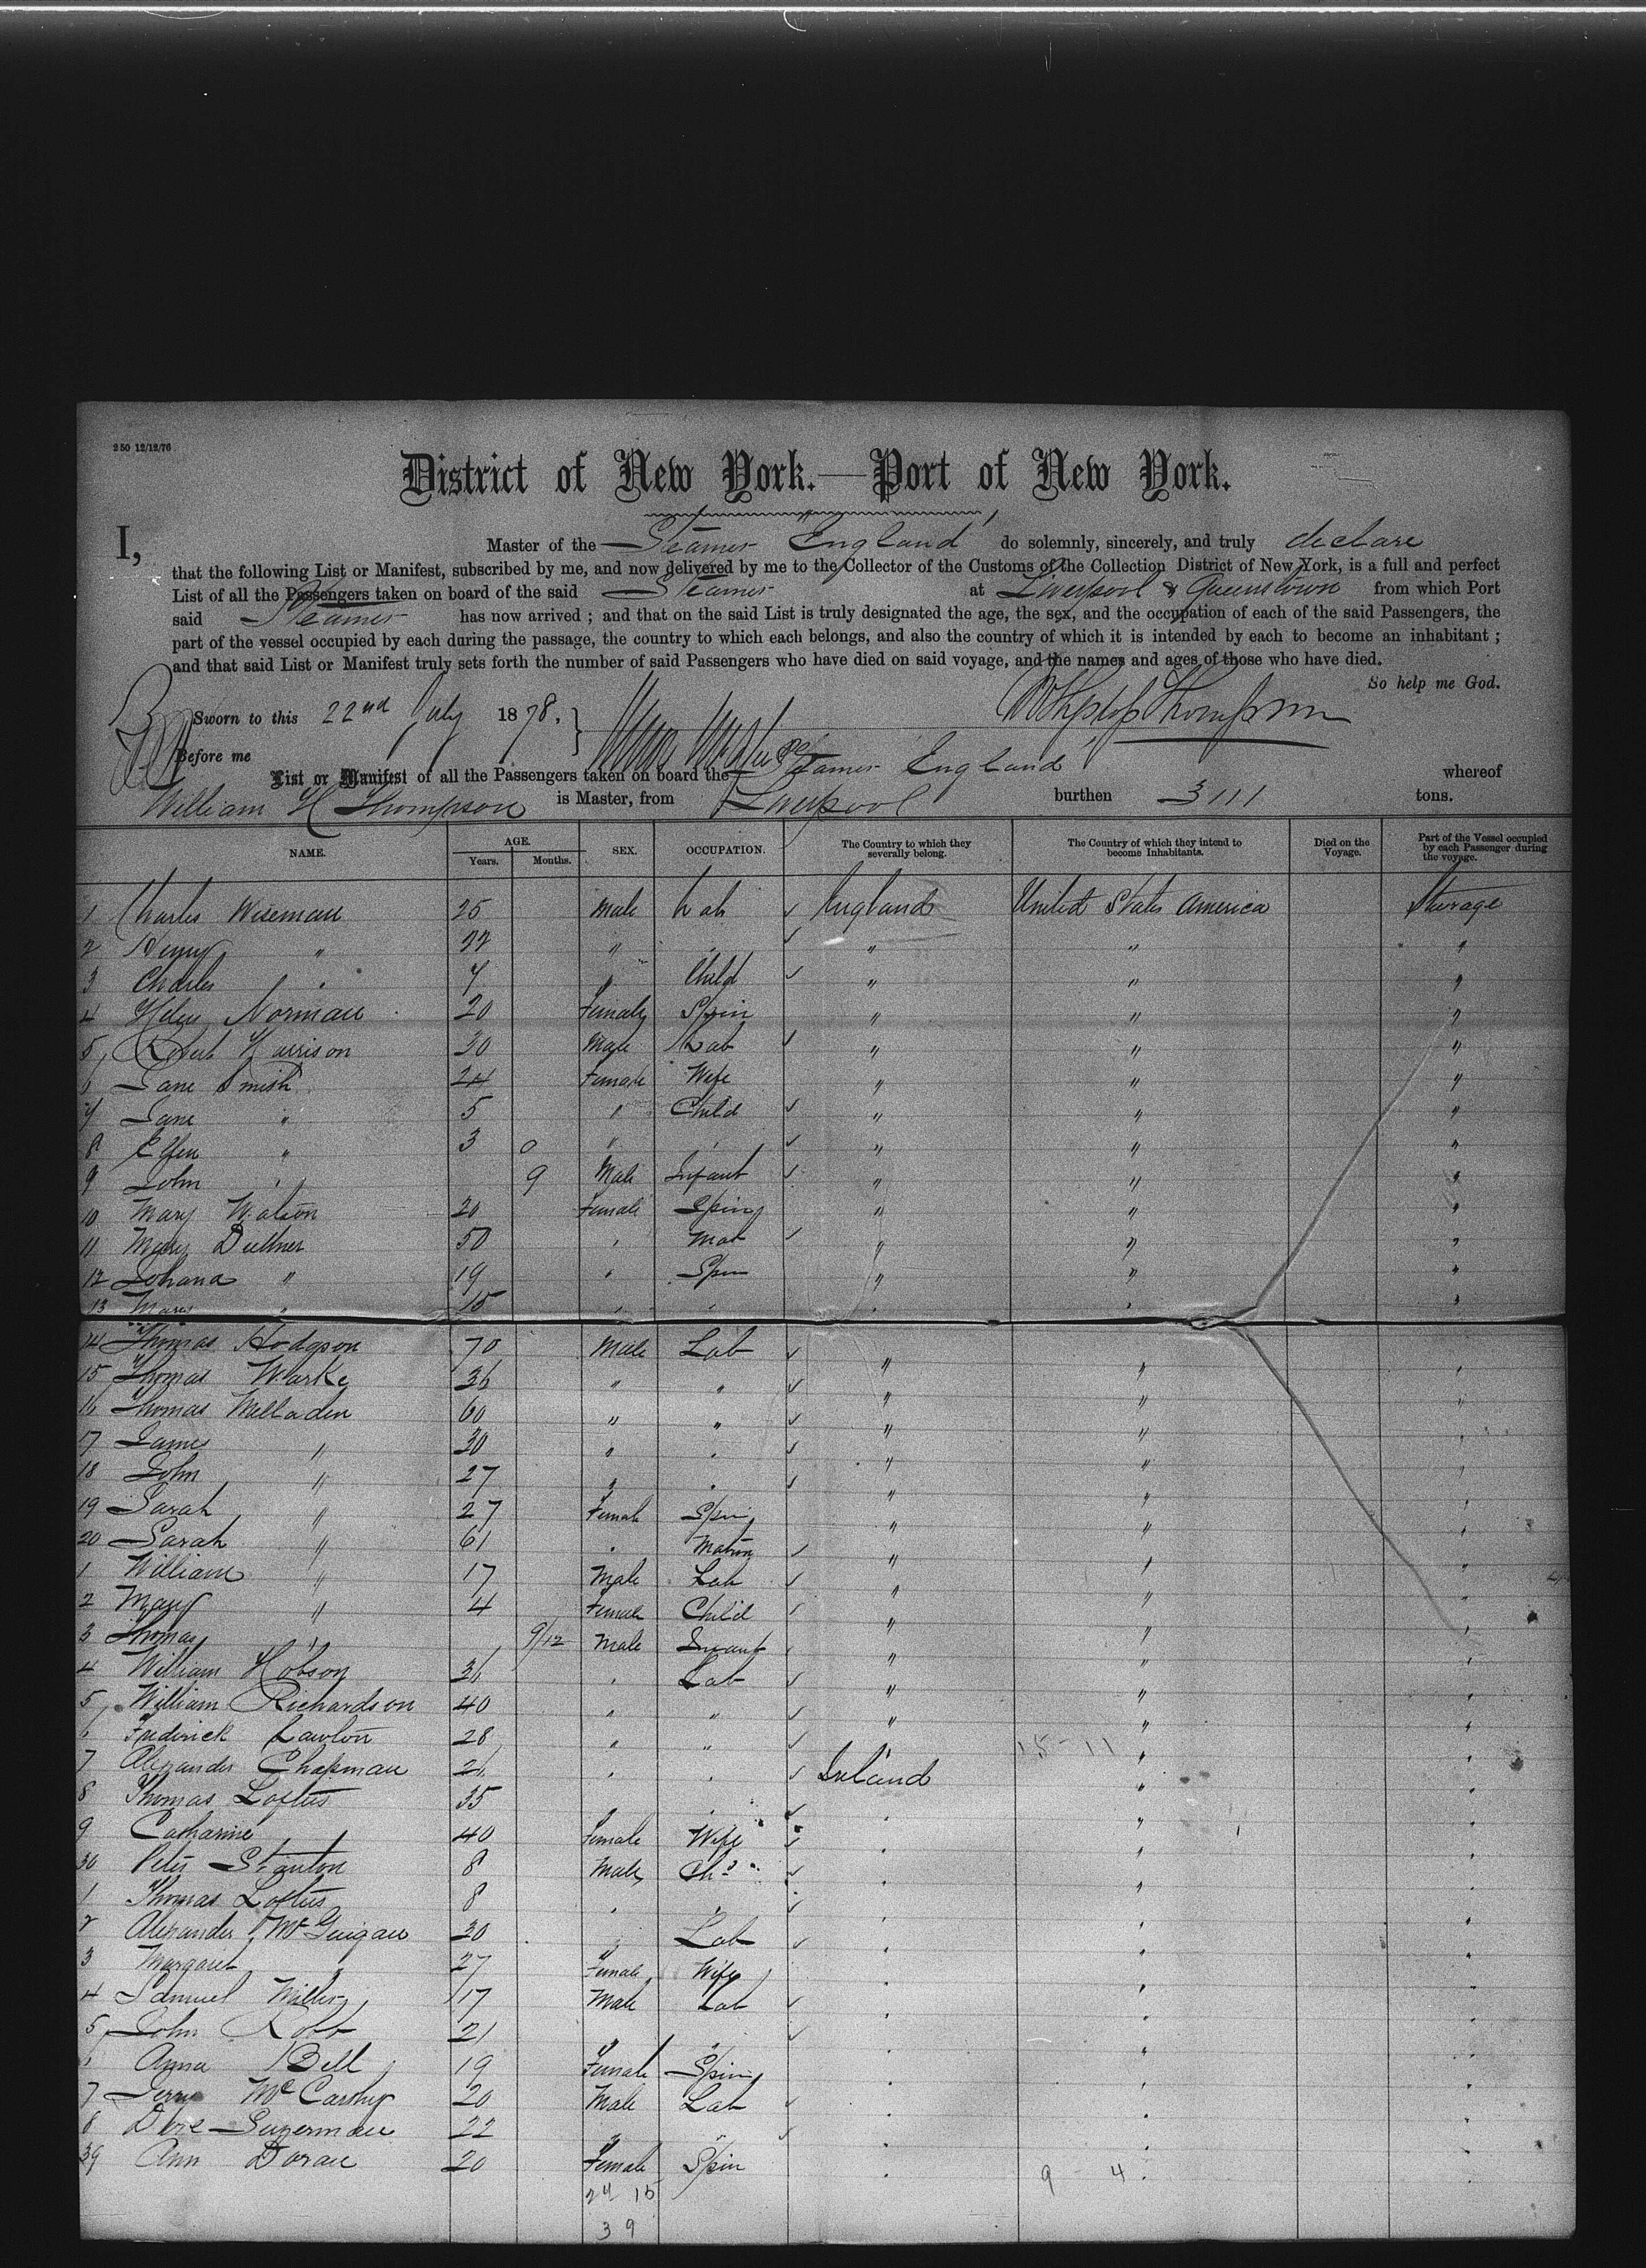 250 12/12/76
District of New York.—Port of New York.
I, Master of the Steamer "England" do solemnly, sincerely, and truly declare
that the following List or Manifest, subscribed by me, and now delivered by me to the Collector of the Customs of the Collection District of New York, is a full and perfect
List of all the Passengers taken on board of the said Steamer at Liverpool & Queenstown from which Port
said Steamer has now arrived ; and that on the said List is truly designated the age, the sex, and the occupation of each of the said Passengers, the
part of the vessel occupied by each during the passage, the country to which each belongs, and also the country of which it is intended by each to become an inhabitant ;
and that said List or Manifest truly sets forth the number of said Passengers who have died on said voyage, and the names and ages of those who have died.
So help me God.
Sworn to this 22nd July 1878. Thompson
Before me
List or Manifest of all the Passengers taken on board the Steamer England whereof
William H Thompson is Master, from Liverpool burthen 3111 tons.
NAME. AGE. Years. Months. SEX. OCCUPATION. The Country to which they severally belong. The Country of which they intend to become Inhabitants. Died on the Voyage. Part of the Vessel occupied by each Passenger during the voyage.
1 Charles Wiseman 25 Male Lab England United States America Steerage
2 Henry " 22 " " " " "
3 Charles " 7 " Child " " "
4 Helen Norman 20 Female Spin " " "
5 Robert Harrison 30 Male Lab " " "
6 Jane Smith 24 Female Wife " " "
7 Jane " 5 " Child " " "
8 Ellen " 3 0 " " " " "
9 John " 9 Male Infant " " "
10 Mary Watson 20 Female Spin " " "
11 Mary Duttner 50 " Mat " " "
12 Johana " 19 " Spin " " "
13 Mary " 15 " " " " "
14 Thomas Hodgson 70 Male Lab " " "
15 Thomas Warke 36 " " " " "
16 Thomas Melladen 60 " " " " "
17 James " 30 " " " " "
18 John " 27 " " " " "
19 Sarah " 27 Female Spin " " "
20 Sarah " 61 " Matron " " "
1 William " 17 Male Lab " " "
2 Mary " 4 Female Child " " "
3 Thomas " 9/12 Male Infant " " "
4 William Hobson 36 " Lab " " "
5 William Richardson 40 " " " " "
6 Frederick Lawton 28 " " " 15-11 " "
7 Alexander Chapman 26 " " Ireland " "
8 Thomas Loftus 35 " " " " "
9 Catharine " 40 Female Wife " " "
30 Peter Stanton 8 Male Chd " " "
1 Thomas Loftus 8 " " " " "
2 Alexander McGuigan 30 " Lab " " "
3 Margaret " 27 Female Wife " " "
4 Samuel 17 Male Lab " " "
5 John Robb 21 " " " " "
6 Anna Bell 19 Female Spin " " "
7 Jerry McCarthy 20 Male Lab " " "
8 22 " " " " "
39 Ann Doran 20 Female Spin " " "
24 15 9 - 4
39